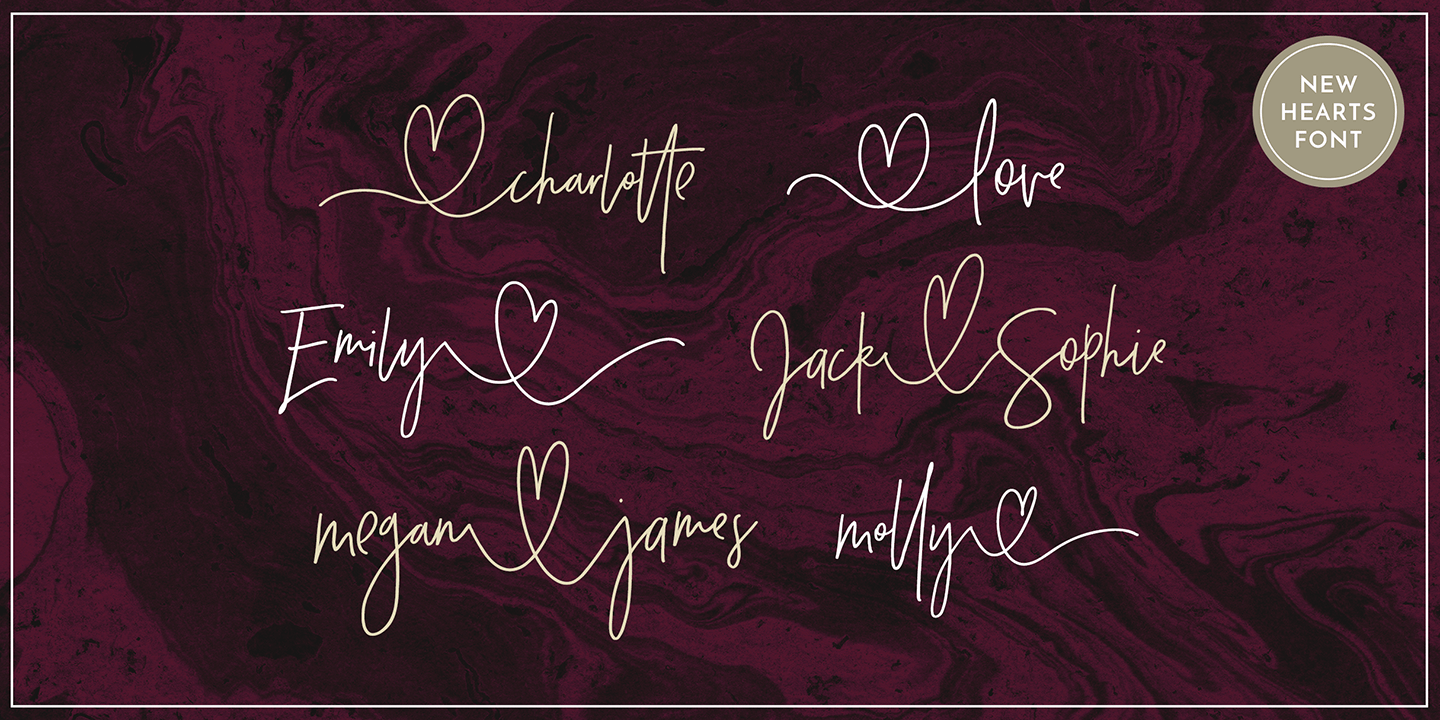 NEW
HEARTS
FONT
charlotte
love
Emily
Jack Sophie
megan james
molly